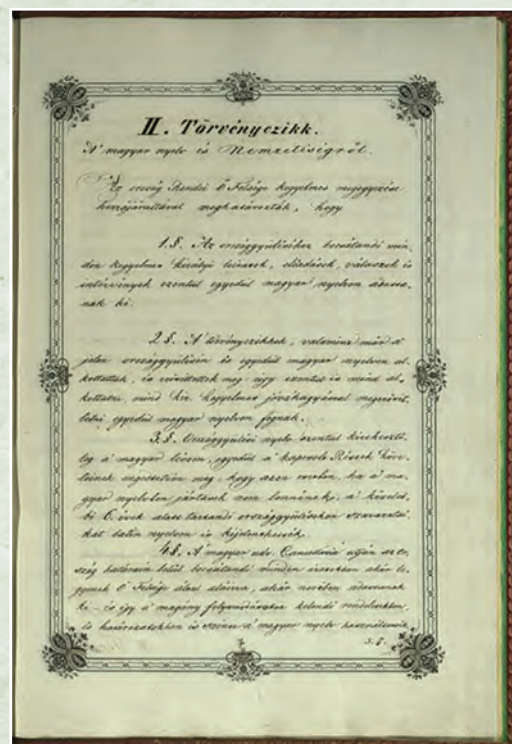 II. Törvényczikk.
A' magyar nyelv és Nemzetiségről.
Az ország Rendei Ő Felsége kegyelmes megegyezése
hozzájárultával meghatározták, hogy
1. §. Az országgyűléshez bocsátandó min-
den kegyelmes királyi leirások, előadások, válaszok és
intézvények ezentúl egyedül magyar nyelven adassa-
nak ki.
2. §. A' törvényczikkek, valamint már a'
jelen országgyűlésen is egyedül magyar nyelven al-
kottattak, és erősíttettek meg: úgy ezentúl is mind al-
kottatni, mind kir. kegyelmes jóváhagyással megerősít-
tetni egyedül magyar nyelven fognak.
3. §. Országgyűlési nyelv ezentúl kirekesztő-
leg a' magyar lészen, egyedül a' kapcsolt Részek köve-
teinek engedtetvén meg, hogy azon esetben, ha a' ma-
gyar nyelvben jártasok nem lennének, a' követke-
ző 6. évek alatt tartandó országgyűléseken szavazatai-
kat latin nyelven is kijelenthessék.
4. §. A' magyar udv. Cancellária útján az or-
szág határain belül bocsátandó minden
Ő Felsége által aláírva, akár nevében adassanak
ki – és így a' magány folyamodásokra kelendő rendeletekben,
és határozatokban is a' magyar nyelv használtassék.
5. §.